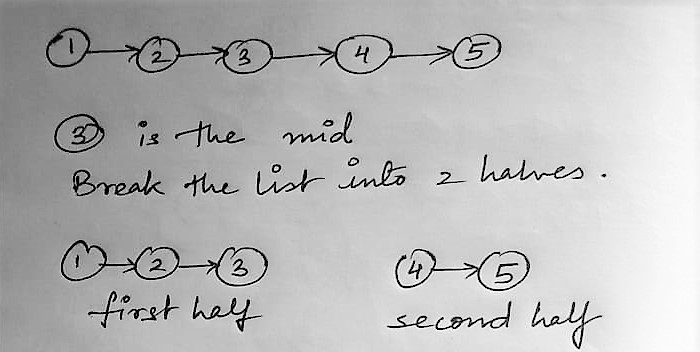 1 2 3 4 5
3 is the mid
Break the list into 2 halves.
1 2 3 4 5
first half second half